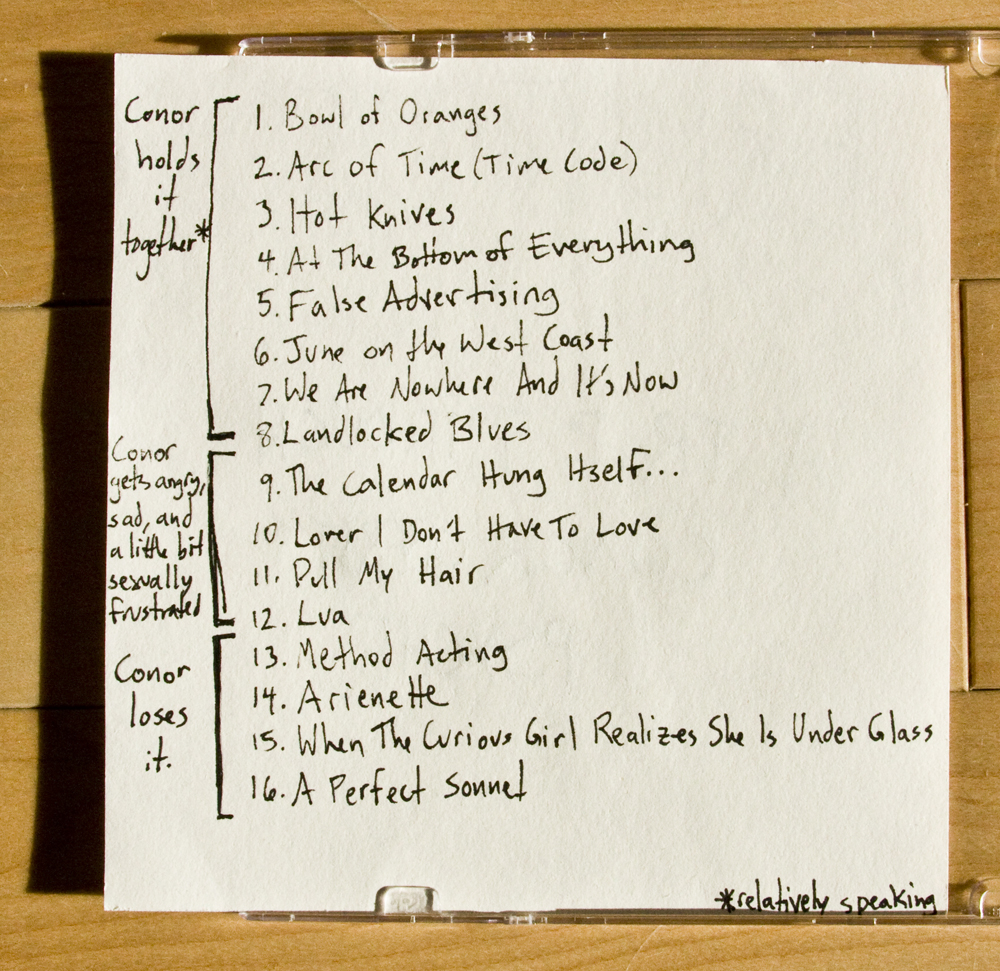 Conor
holds
it
together*
1. Bowl of Oranges
2. Arc of Time (Time Code)
3. Hot Knives
4. At The Bottom of Everything
5. False Advertising
6. June on the West Coast
7. We Are Nowhere And It's Now
8. Landlocked Blues
Conor
gets angry,
sad, and
a little bit
sexually
frustrated
9. The Calendar Hung Itself...
10. Lover I Don't Have To Love
11. Pull My Hair
12. Lua
Conor
loses
it.
13. Method Acting
14. Arienette
15. When The Curious Girl Realizes She Is Under Glass
16. A Perfect Sonnet
*relatively speaking